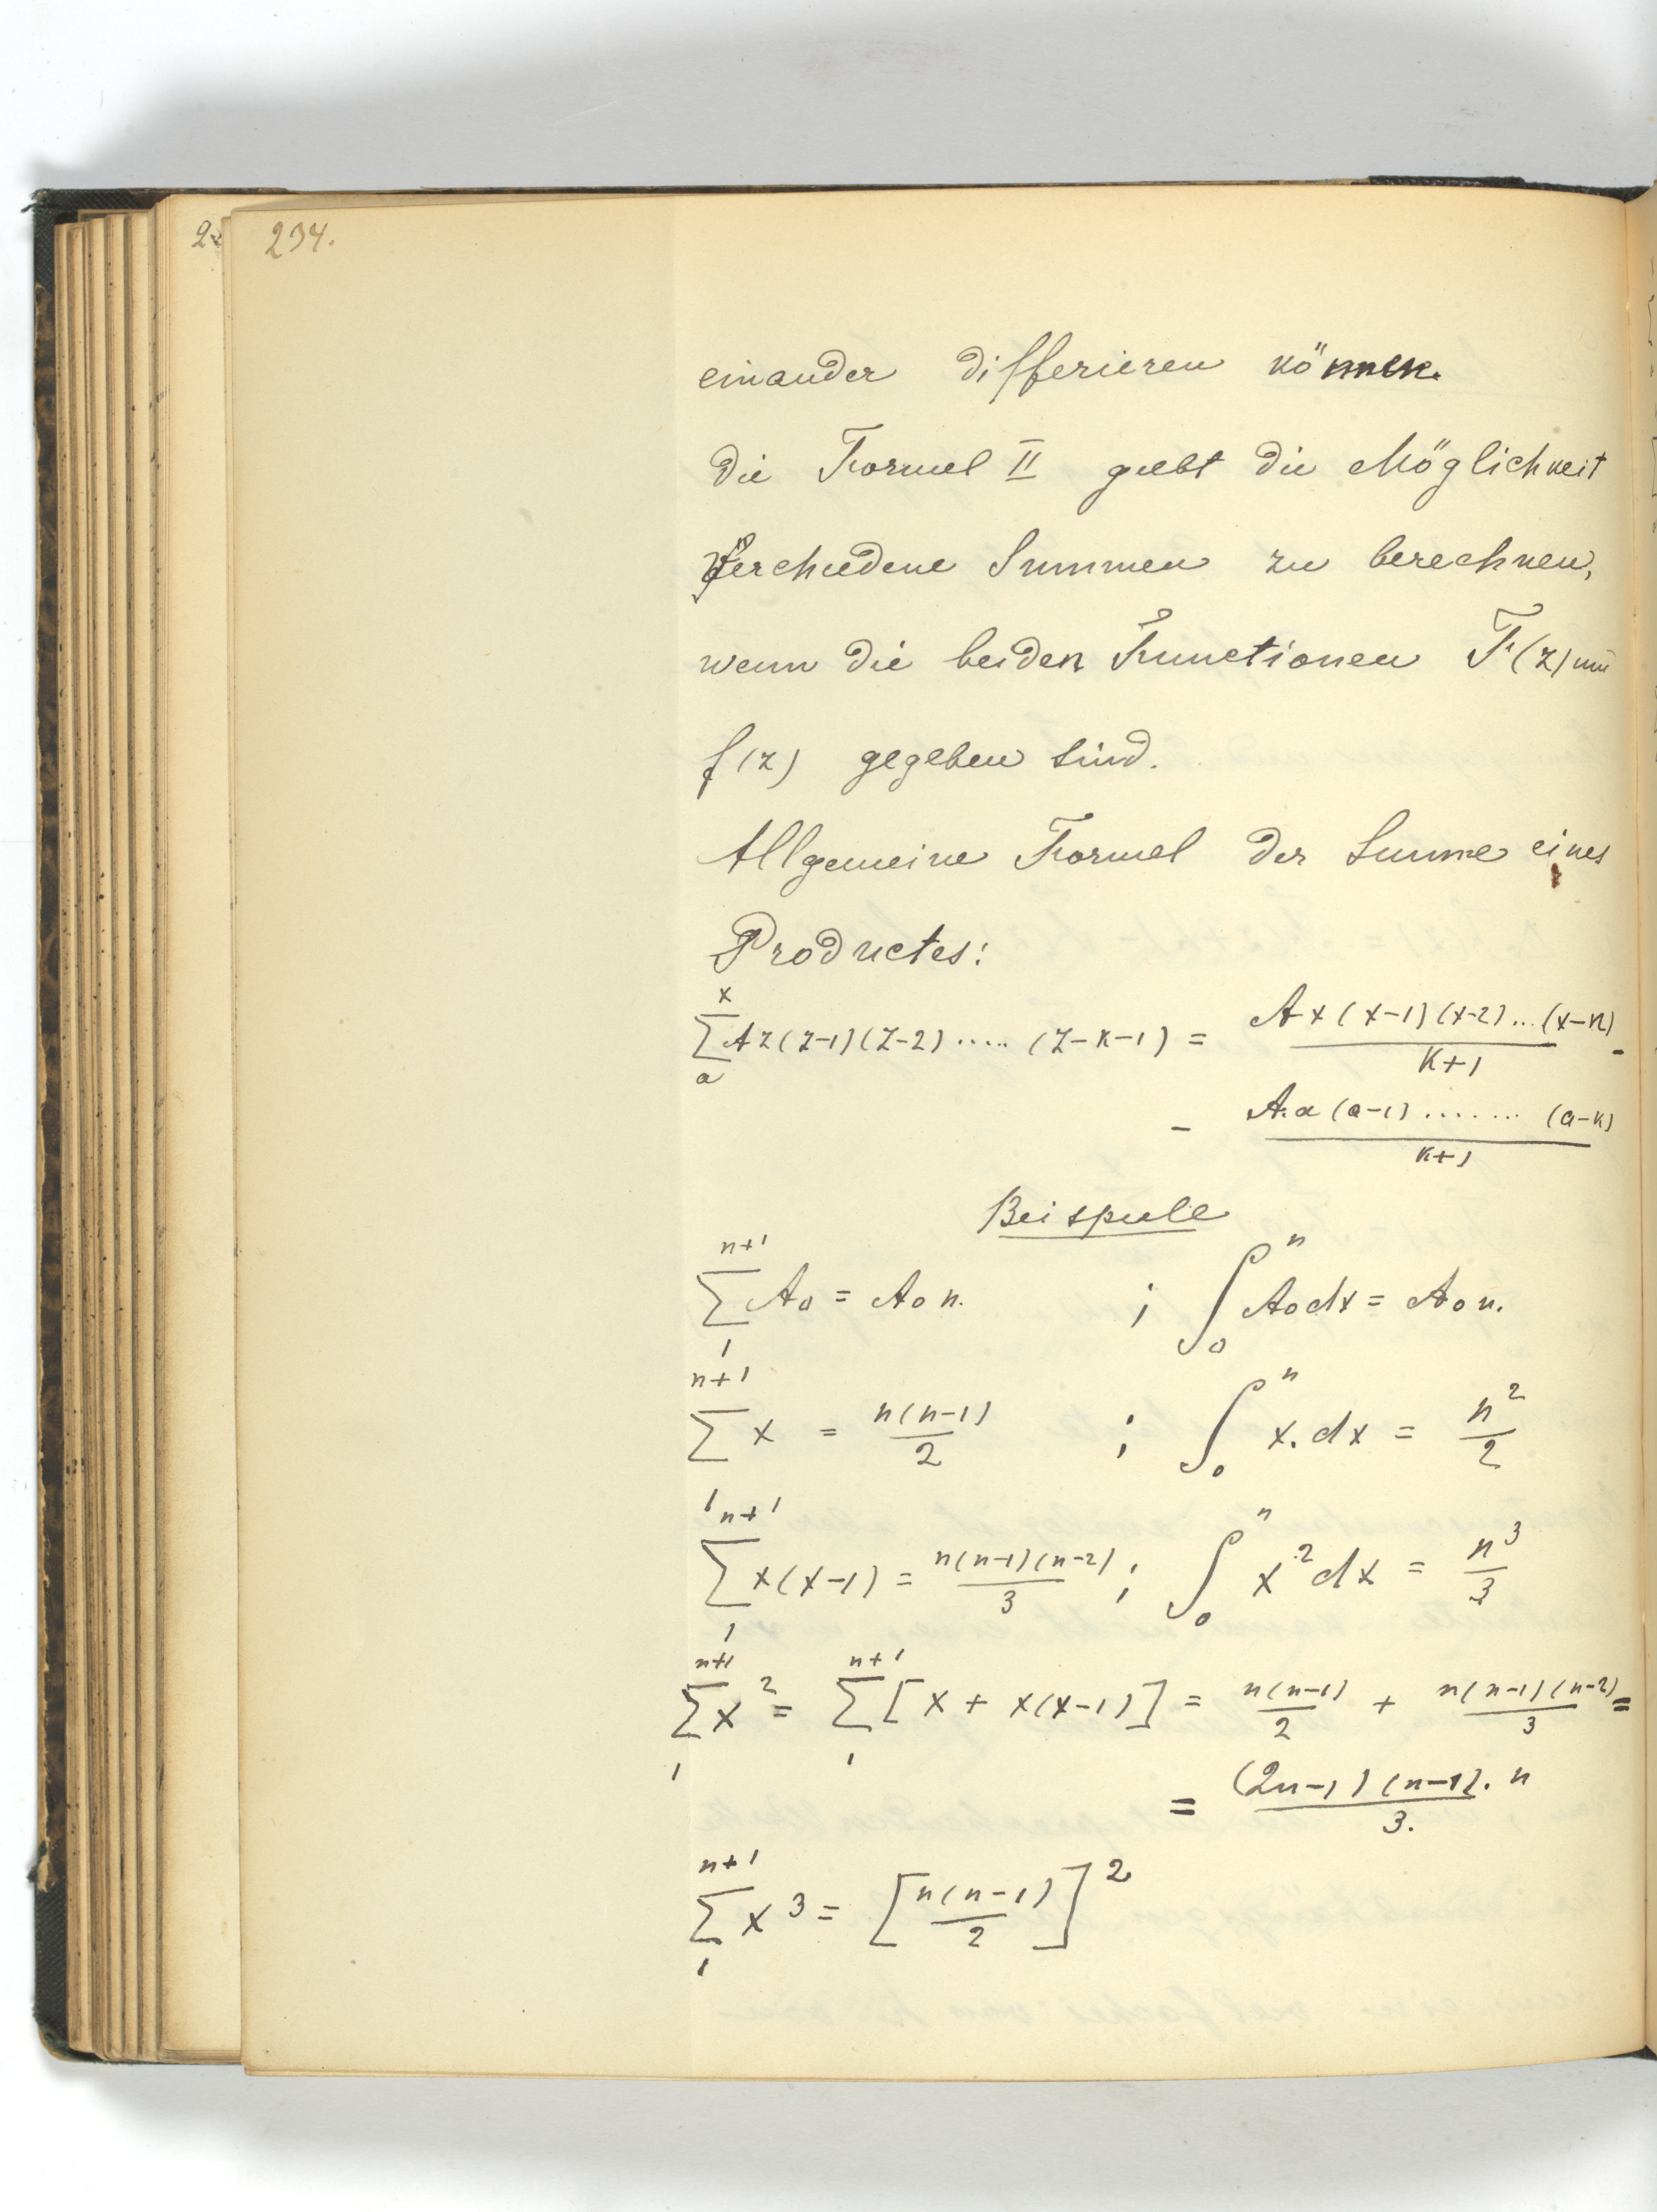 234.
einander differieren können.
die Formel II giebt die Möglichkeit
Verschiedene Summen zu berechnen,
wenn die beiden Functionen F(z) und
f(z) gegeben sind.
Allgemeine Formel der Summe eines
Productes:
\sum_{a}^{x} Az(z-1)(z-2).....(z-k-1) = \frac{Ax(x-1)(x-2)...(x-k)}{k+1} -
- \frac{A.a(a-1).......(a-k)}{k+1}
Beispiele
\sum_{1}^{n+1} A_0 = A_0 n. ; \int_0^n A_0 dx = A_0 n.
\sum_{1}^{n+1} x = \frac{n(n-1)}{2} ; \int_0^n x.dx = \frac{n^2}{2}
\sum_{1}^{n+1} x(x-1) = \frac{n(n-1)(n-2)}{3} ; \int_0^n x^2 dx = \frac{n^3}{3}
\sum_{1}^{n+1} x^2 = \sum_{1}^{n+1} [x + x(x-1)] = \frac{n(n-1)}{2} + \frac{n(n-1)(n-2)}{3} =
= \frac{(2n-1)(n-1).n}{3.}
\sum_{1}^{n+1} x^3 = [\frac{n(n-1)}{2}]^2